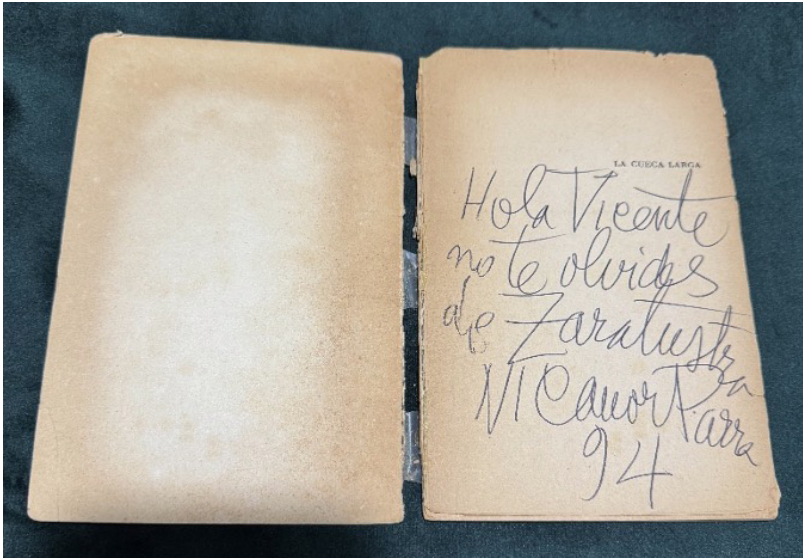 LA CUECA LARGA
Hola Vicente
no te olvides
de Zaratustra
NICanor Parra
94